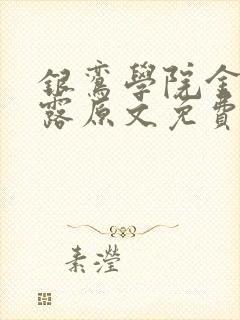 銀鸞學院金
露原文免費
素瀅